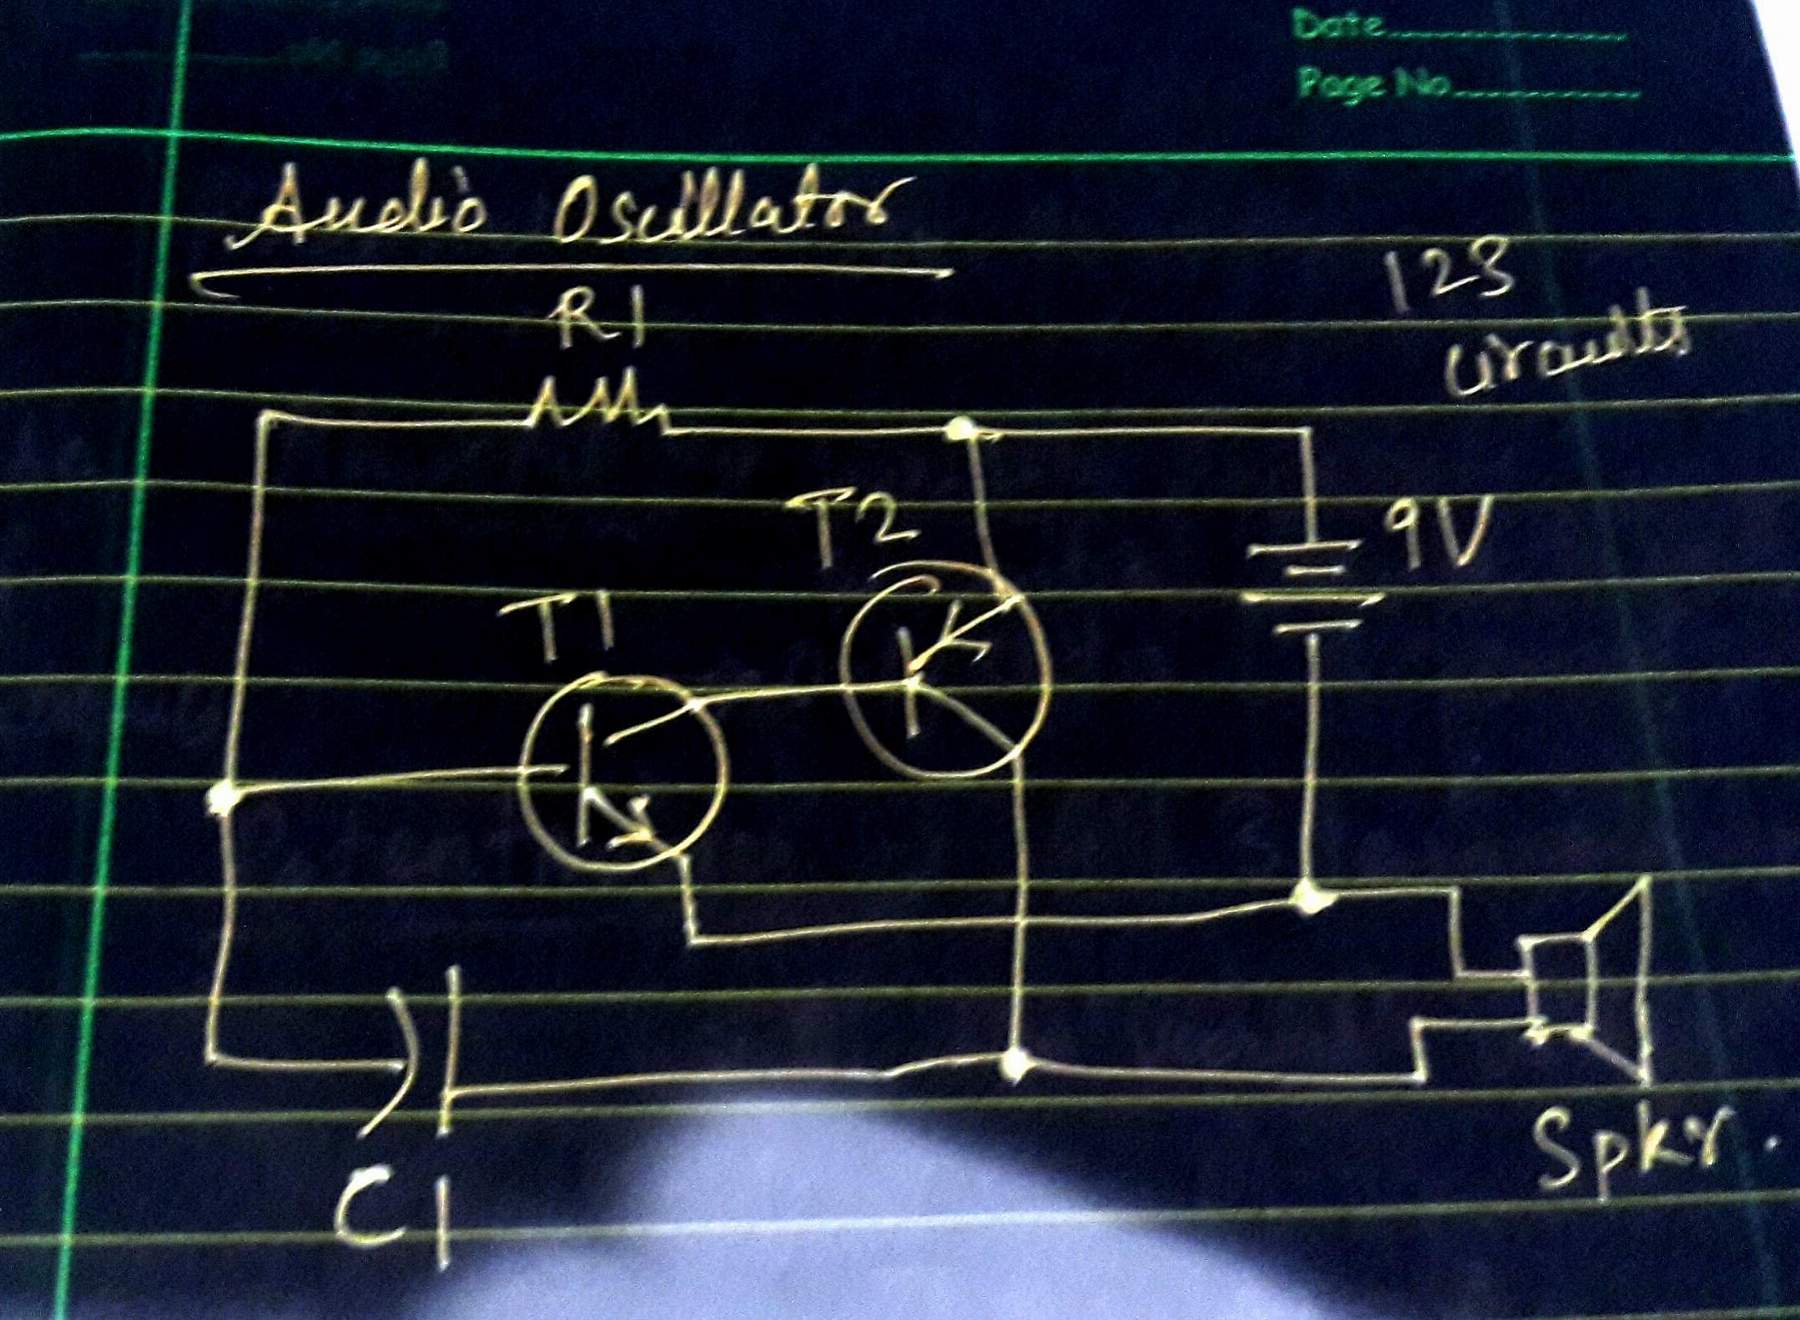 Date
Page No.
Audio Oscillator
123
circuits
R1
T2
9V
T1
C1
Spkr.